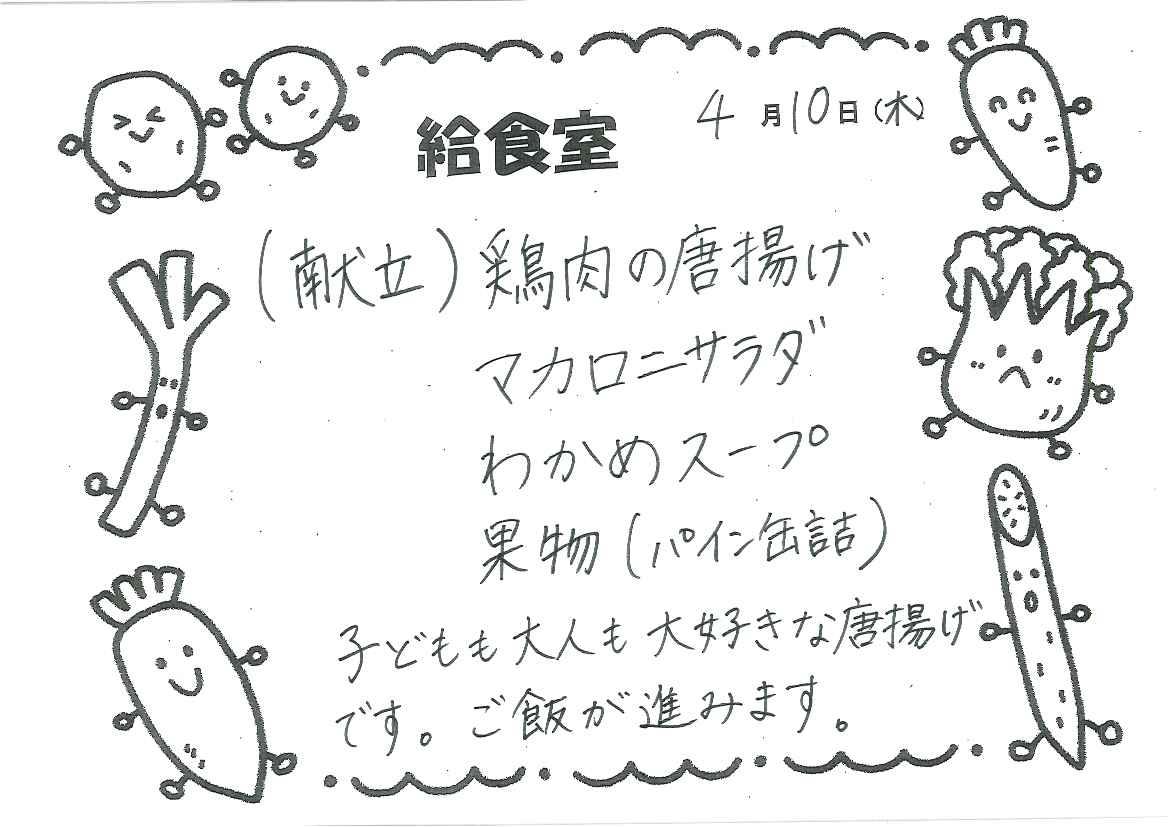 4月10日(木)
給食室
(献立)鶏肉の唐揚げ
マカロニサラダ
わかめスープ
果物(パイン缶詰)
子どもも大人も大好きな唐揚げ
です。ご飯が進みます。